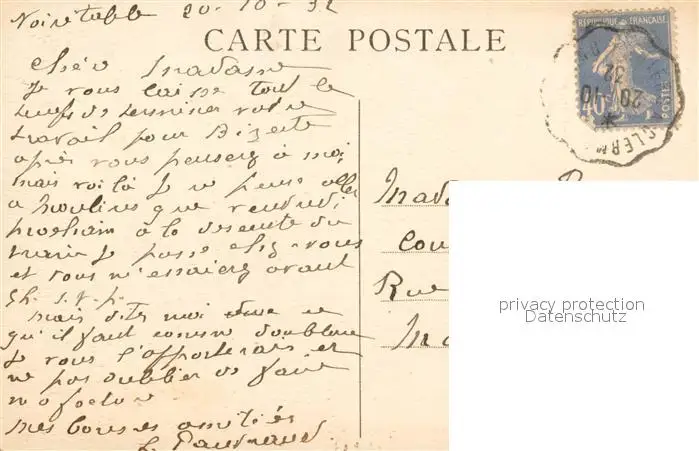 Noiretable 20-10-32
CARTE POSTALE
RÉPUBLIQUE FRANÇAISE
POSTES
40
20 10
32
CLERM
Chère Madame
Je vous laisse tout le
temps de terminer votre
travail pour Bizerte
après vous penserez à moi
mais voilà je ne peux aller
a moulins que vendredi
prochain à la descente du
train je passe chez vous
et vous m'essaierez avant
s.v.p.
mais dites moi
qu'il faut comme doublure
Je vous l'apporterais et
ne pas oublier de faire
ma facture
mes bonnes amitiés
Mada
Cou
Rue
privacy protection
Datenschutz